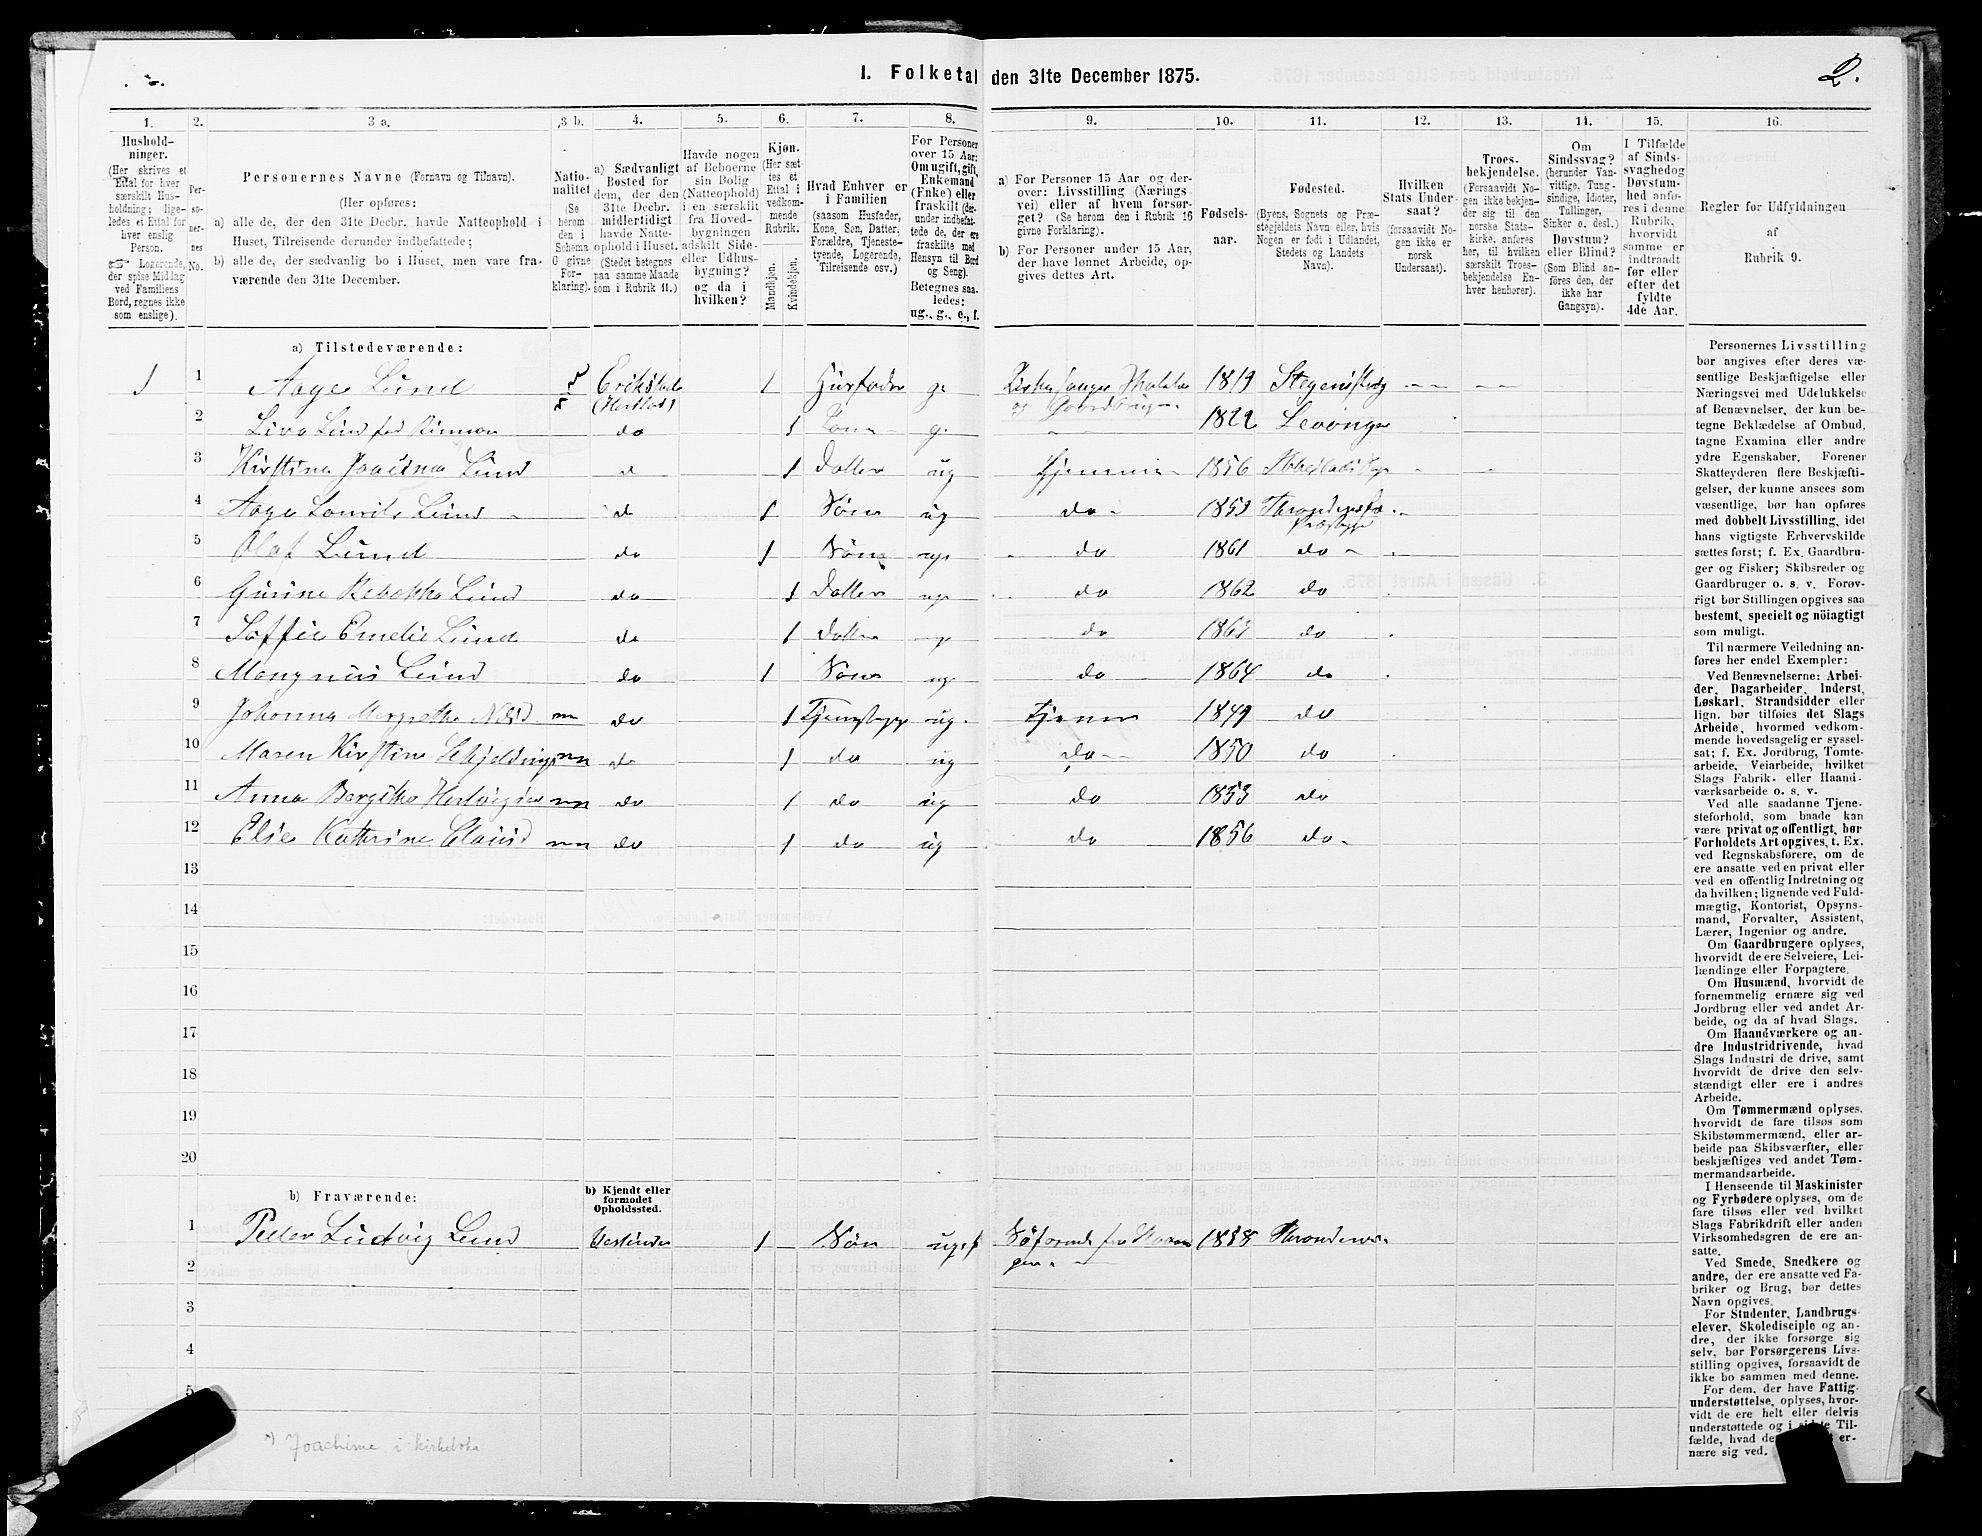 1. Folketal den 31te December 1875.
2.
1.
2.
3 a.
3 b.
4.
5.
6.
7.
8.
9.
10.
11.
12.
13.
14.
15.
16.
Hushold-
ninger.
(Her skrives et
Ettal for hver
særskilt Hus-
holdning; lige-
ledes et Ettal for
hver enslig
Person.
☞ Logerende,
der spise Middag
ved Familiens
Bord, regnes ikke
som enslige).
Per-
so-
ner-
nes
No.
Personernes Navne (Fornavn og Tilnavn).
(Her opføres:
a) alle de, der den 31te Decbr. havde Natteophold i
Huset, Tilreisende derunder indbefattede;
b) alle de, der sædvanlig bo i Huset, men vare fra-
værende den 31te December.
Natio-
nalitet
(Se
herom
den i
Schema
0 givne
For-
klaring).
a) Sædvanligt
Bosted for
dem, der den
31te Decbr.
midlertidigt
havde Natte-
ophold i Huset.
(Stedet betegnes
paa samme Maade
som i Rubrik 11.)
Havde nogen
af Beboerne
sin Bolig
(Natteophold)
i en særskilt
fra Hoved-
bygningen
adskilt Side-
eller Udhus-
bygning?
og da i
hvilken?
Kjøn.
(Her sæt-
tes et
Ettal i
vedkom-
mende
Rubrik.
Mandkjøn.
Kvindekjøn.
Hvad Enhver er
i Familien
(saasom Husfader,
Kone, Søn, Datter,
Forældre, Tjeneste-
tyende, Logerende,
Tilreisende osv.)
For Personer
over 15 Aar:
Om ugift, gift,
Enkemand
(Enke) eller
fraskilt (der-
under indbefat-
tede de, der ere
fraskilte med
Hensyn til Bord
og Seng).
Betegnes saa-
ledes:
ug., g., e., f.
a) For Personer 15 Aar og der-
over: Livsstilling (Nærings-
vei) eller af hvem forsør-
get? (Se herom den i Rubrik 16
givne Forklaring).
b) For Personer under 15 Aar,
der have lønnet Arbeide, op-
gives dettes Art.
Fødsels-
aar.
Fødested.
(Byens, Sognets og Præ-
stegjeldets Navn eller, hvis
Nogen er født i Udlandet,
Stedets og Landets
Navn).
Hvilken
Stats Under-
saat?
(forsaavidt No-
gen ikke er
norsk
Undersaat).
Troes-
bekjendelse.
(Forsaavidt No-
gen ikke bekjen-
der sig til den
norske Stats-
kirke, anføres
her, til hvilken
særskilt Troes-
bekjendelse En-
hver henhører).
Om
Sindssvag?
(herunder Van-
vittige, Tung-
sindige, Idioter,
Tullinger,
Sinker o. desl.)
Døvstum?
eller Blind?
(Som Blind an-
føres den, der
ikke har
Gangsyn).
I Tilfælde
af Sinds-
svaghed og
Døvstum-
hed anfø-
res i denne
Rubrik,
hvorvidt
samme er
indtraadt
før eller
efter det
fyldte
4de Aar.
Regler for Udfyldningen
af
Rubrik 9.
a) Tilstedeværende:
1 1 Aage Lund Erikstad (Hertlad) 1 Husfader g. 1819
og Gaardbruger
2 Liva Lund fød do 1 Kone g. 1822 Levanger
3 Kirstina Lund d 1 Datter ug 1856
4 Aage Laurits Lund d 1 Søn ug do 1853 Throndenæs
5 Olaf Lund do 1 Søn ug. do 1861 do
6 Gurine Rebekka Lund do 1 Datter ug. do 1862 do
7 Soffie Emelie Lund do 1 Datter ug do 1863 do
8 Mangnus Lund do 1 Søn ug. do 1864 do
9 Johanna Margrethe do 1 ug. Tjener 1849 do
10 Maren Kirstine do 1 do ug do 1850 do
11 Anna Bergitha do 1 do ug do 1853 do
12 Elise Kathrine do 1 do ug do 1856 do
13
14
15
16
17
18
19
20
b) Fraværende:
b) Kjendt eller
formodet
Opholdssted.
1 Peder Ludvig Lund 1 Søn Throndenæs
2
3
4
5
Joachime i kirkeboka
Personernes Livsstilling
bør angives efter deres væ-
sentlige Beskjæftigelse eller
Næringsvei med Udelukkelse
af Benævnelser, der kun be-
tegne Beklædelse af Ombud,
tagne Examina eller andre
ydre Egenskaber. Forener
Skatteyderen flere Beskjæfti-
gelser, der kunne ansees som
væsentlige, bør han opføres
med dobbelt Livsstilling, idet
hans vigtigste Erhvervskilde
sættes først; f. Ex. Gaardbru-
ger og Fisker; Skibsreder og
Gaardbruger o. s. v. Forøv-
rigt bør Stillingen opgives saa
bestemt, specielt og nöiagtigt
som muligt.
Til nærmere Veiledning an-
føres her endel Exempler:
Ved Benævnelserne: Arbei-
der, Dagarbeider, Inderst,
Løskarl, Strandsidder eller
lign. bør tilføies det Slags
Arbeide, hvormed vedkom-
mende hovedsagelig er syssel-
sat; f. Ex. Jordbrug, Tomte-
arbeide, Veiarbeide, hvilket
Slags Fabrik- eller Haand-
værksarbeide o. s. v.
Ved alle saadanne Tjene-
steforhold, som baade kan
være privat og offentligt, bør
Forholdets Art opgives, t. Ex.
ved Regnskabsførere, om de
ere ansatte ved en privat eller
ved en offentlig Indretning og
da hvilken; lignende ved Fuld-
mægtig, Kontorist, Opsyns-
mand, Forvalter, Assistent,
Lærer, Ingeniør og andre.
Om Gaardbrugere oplyses,
hvorvidt de ere Selveiere, Lei-
lændinge eller Forpagtere.
Om Husmænd, hvorvidt de
fornemmelig ernære sig ved
Jordbrug eller ved andet Ar-
beide, og da af hvad Slags.
Om Haandværkere og an-
dre Industridrivende, hvad
Slags Industri de drive, samt
hvorvidt de drive den selv-
stændigt eller ere i andres
Arbeide.
Om Tømmermænd oplyses,
hvorvidt de fare tilsøs som
Skibstømmermænd, eller ar-
beide paa Skibsværfter, eller
beskjæftiges ved andet Tøm-
mermandsarbeide.
I Henseende til Maskinister
og Fyrbødere oplyses, om de
fare tilsøs eller ved hvilket
Slags Fabrikdrift eller anden
Virksomhedsgren de ere an-
satte.
Ved Smede, Snedkere og
andre, der ere ansatte ved Fa-
briker og Brug, bør dettes
Navn opgives.
For Studenter, Landbrugs-
elever, Skoledisciple og an-
dre, der ikke forsørge sig
selv, bør Forsørgerens Livs-
stilling opgives, forsaavidt de
ikke bo sammen med denne.
For dem, der have Fattig-
understøttelse, oplyses, hvor-
vidt de ere helt eller delvis
understøttede og i sidste Til-
fælde, hvad de er-
nære sig ved.